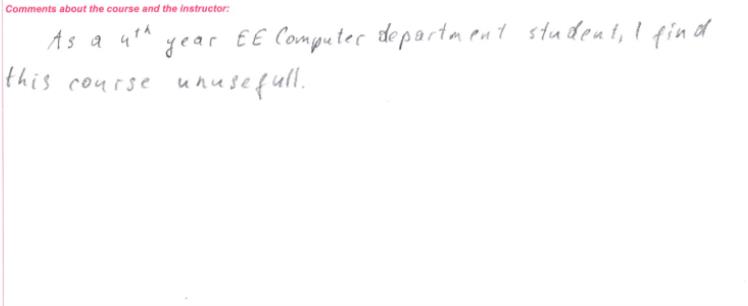 Comments about the course and the instructor:
As a 4th year EE Computer department student, I find
this course unusefull.